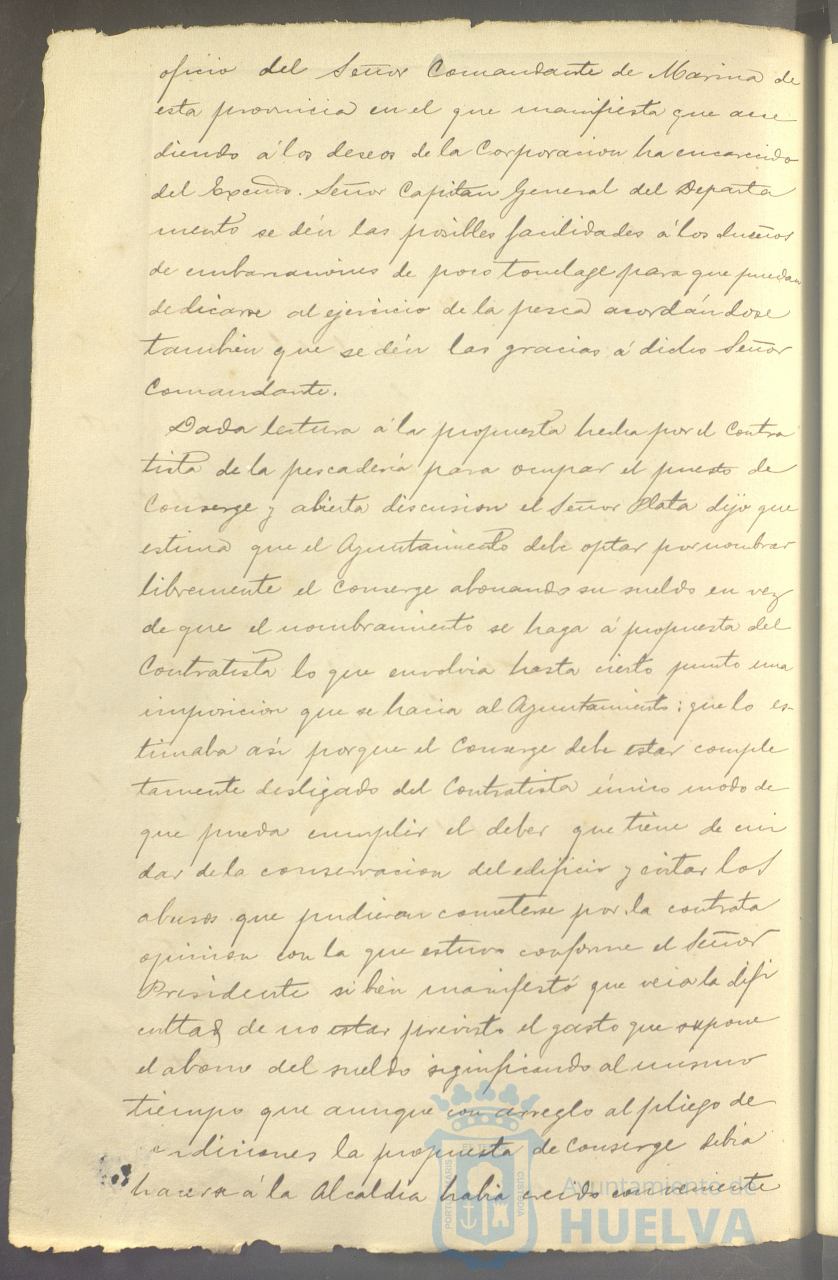 oficio del Señor Comandante de Marina de
esta provincia en el que manifiesta que acce
diendo á los deseos de la Corporacion ha encarecido
del Excmo. Señor Capitan General del Departa
mento se dén las posibles facilidades á los dueños
de embarcaciones de poco tonelage para que puedan
dedicarse al ejercicio de la pesca acordándose
tambien que se dén las gracias á dicho Señor
Comandante.
Dada lectura á la propuesta hecha por el Contra
tista de la pescadería para ocupar el puesto de
Conserge y abierta discusion el Señor Plata dijo que
estima que el Ayuntamiento debe optar por nombrar
libremente el Conserge abonando su sueldo en vez
de que el nombramiento se haga á propuesta del
Contratista lo que envolvia hasta cierto punto una
imposicion que se hacia al Ayuntamiento; que lo es-
timaba asi porque el Conserge debe estar comple
tamente desligado del Contratista único modo de
que pueda cumplir el deber que tiene de cui
dar de la conservacion del edificio y evitar los
abusos que pudieran cometerse por la contrata
opinion con la que estuvo conforme el Señor
Presidente si bien manifestó que veia la difi
cultad de no estar previsto el gasto que supone
el abono del sueldo significando al mismo
tiempo que aunque con arreglo al pliego de
condiciones la propuesta de Conserge debia
hacerse á la Alcaldia habia creido conveniente
Ayuntamiento de
HUELVA
PORTUS MARIS
ET TERRAE
CUSTODIA